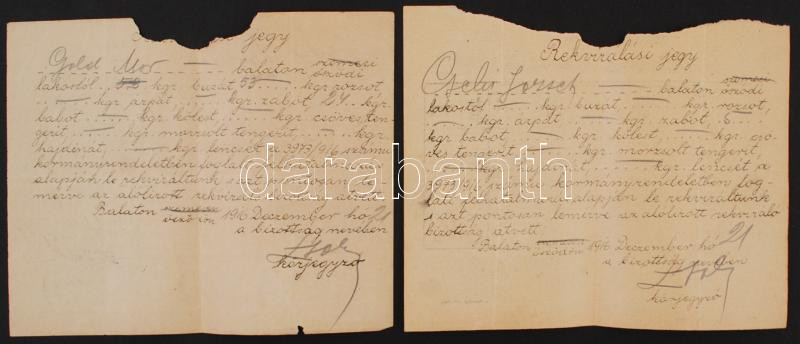 jegy
Gold Mor balaton szemesi
őszödi
lakostól kgr. buzát 55 kgr rozsot,
kgr. árpát kgr. zabot 24 kgr.
babot kgr. kölest kgr. csöves ten-
gerit kgr. morzsolt tengerit, kgr.
hajdinát, kgr. lencsét a 3973/916 számu
kormányrendeletben
alapján le rekviráltunk s azt pontosan le-
mérve az alólirott rekviráló átvett
Balaton 1916 Dezember hó 21
a bizottság nevében
körjegyző
Rekvirálási jegy
Cseh József balaton szemesi
őszödi
lakostól kgr. buzát, kgr. rozsot,
kgr. árpát kgr. zabot, 6
kgr. babot, kgr. kölest, kgr. csö-
ves tengerit kgr. morzsolt tengerit,
kgr. hajdinát, kgr. lencsét a
3973/916 számu kormányrendeletben fog-
lalt alapján le rekviráltunk
s azt pontosan lemérve az alólirott rekviráló
bizottság átvett.
Balaton 1916 Dezember hó 21
a bizottság nevében
körjegyző
darabanth